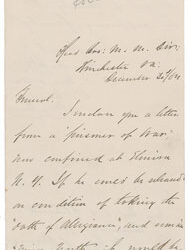 Winchester Va.
December 24/64
General.
I enclose you a letter
from a "prisoner of War"
now confined at Elmira
N. Y. If he could be released
on condition of taking the
"oath of Allegiance", and